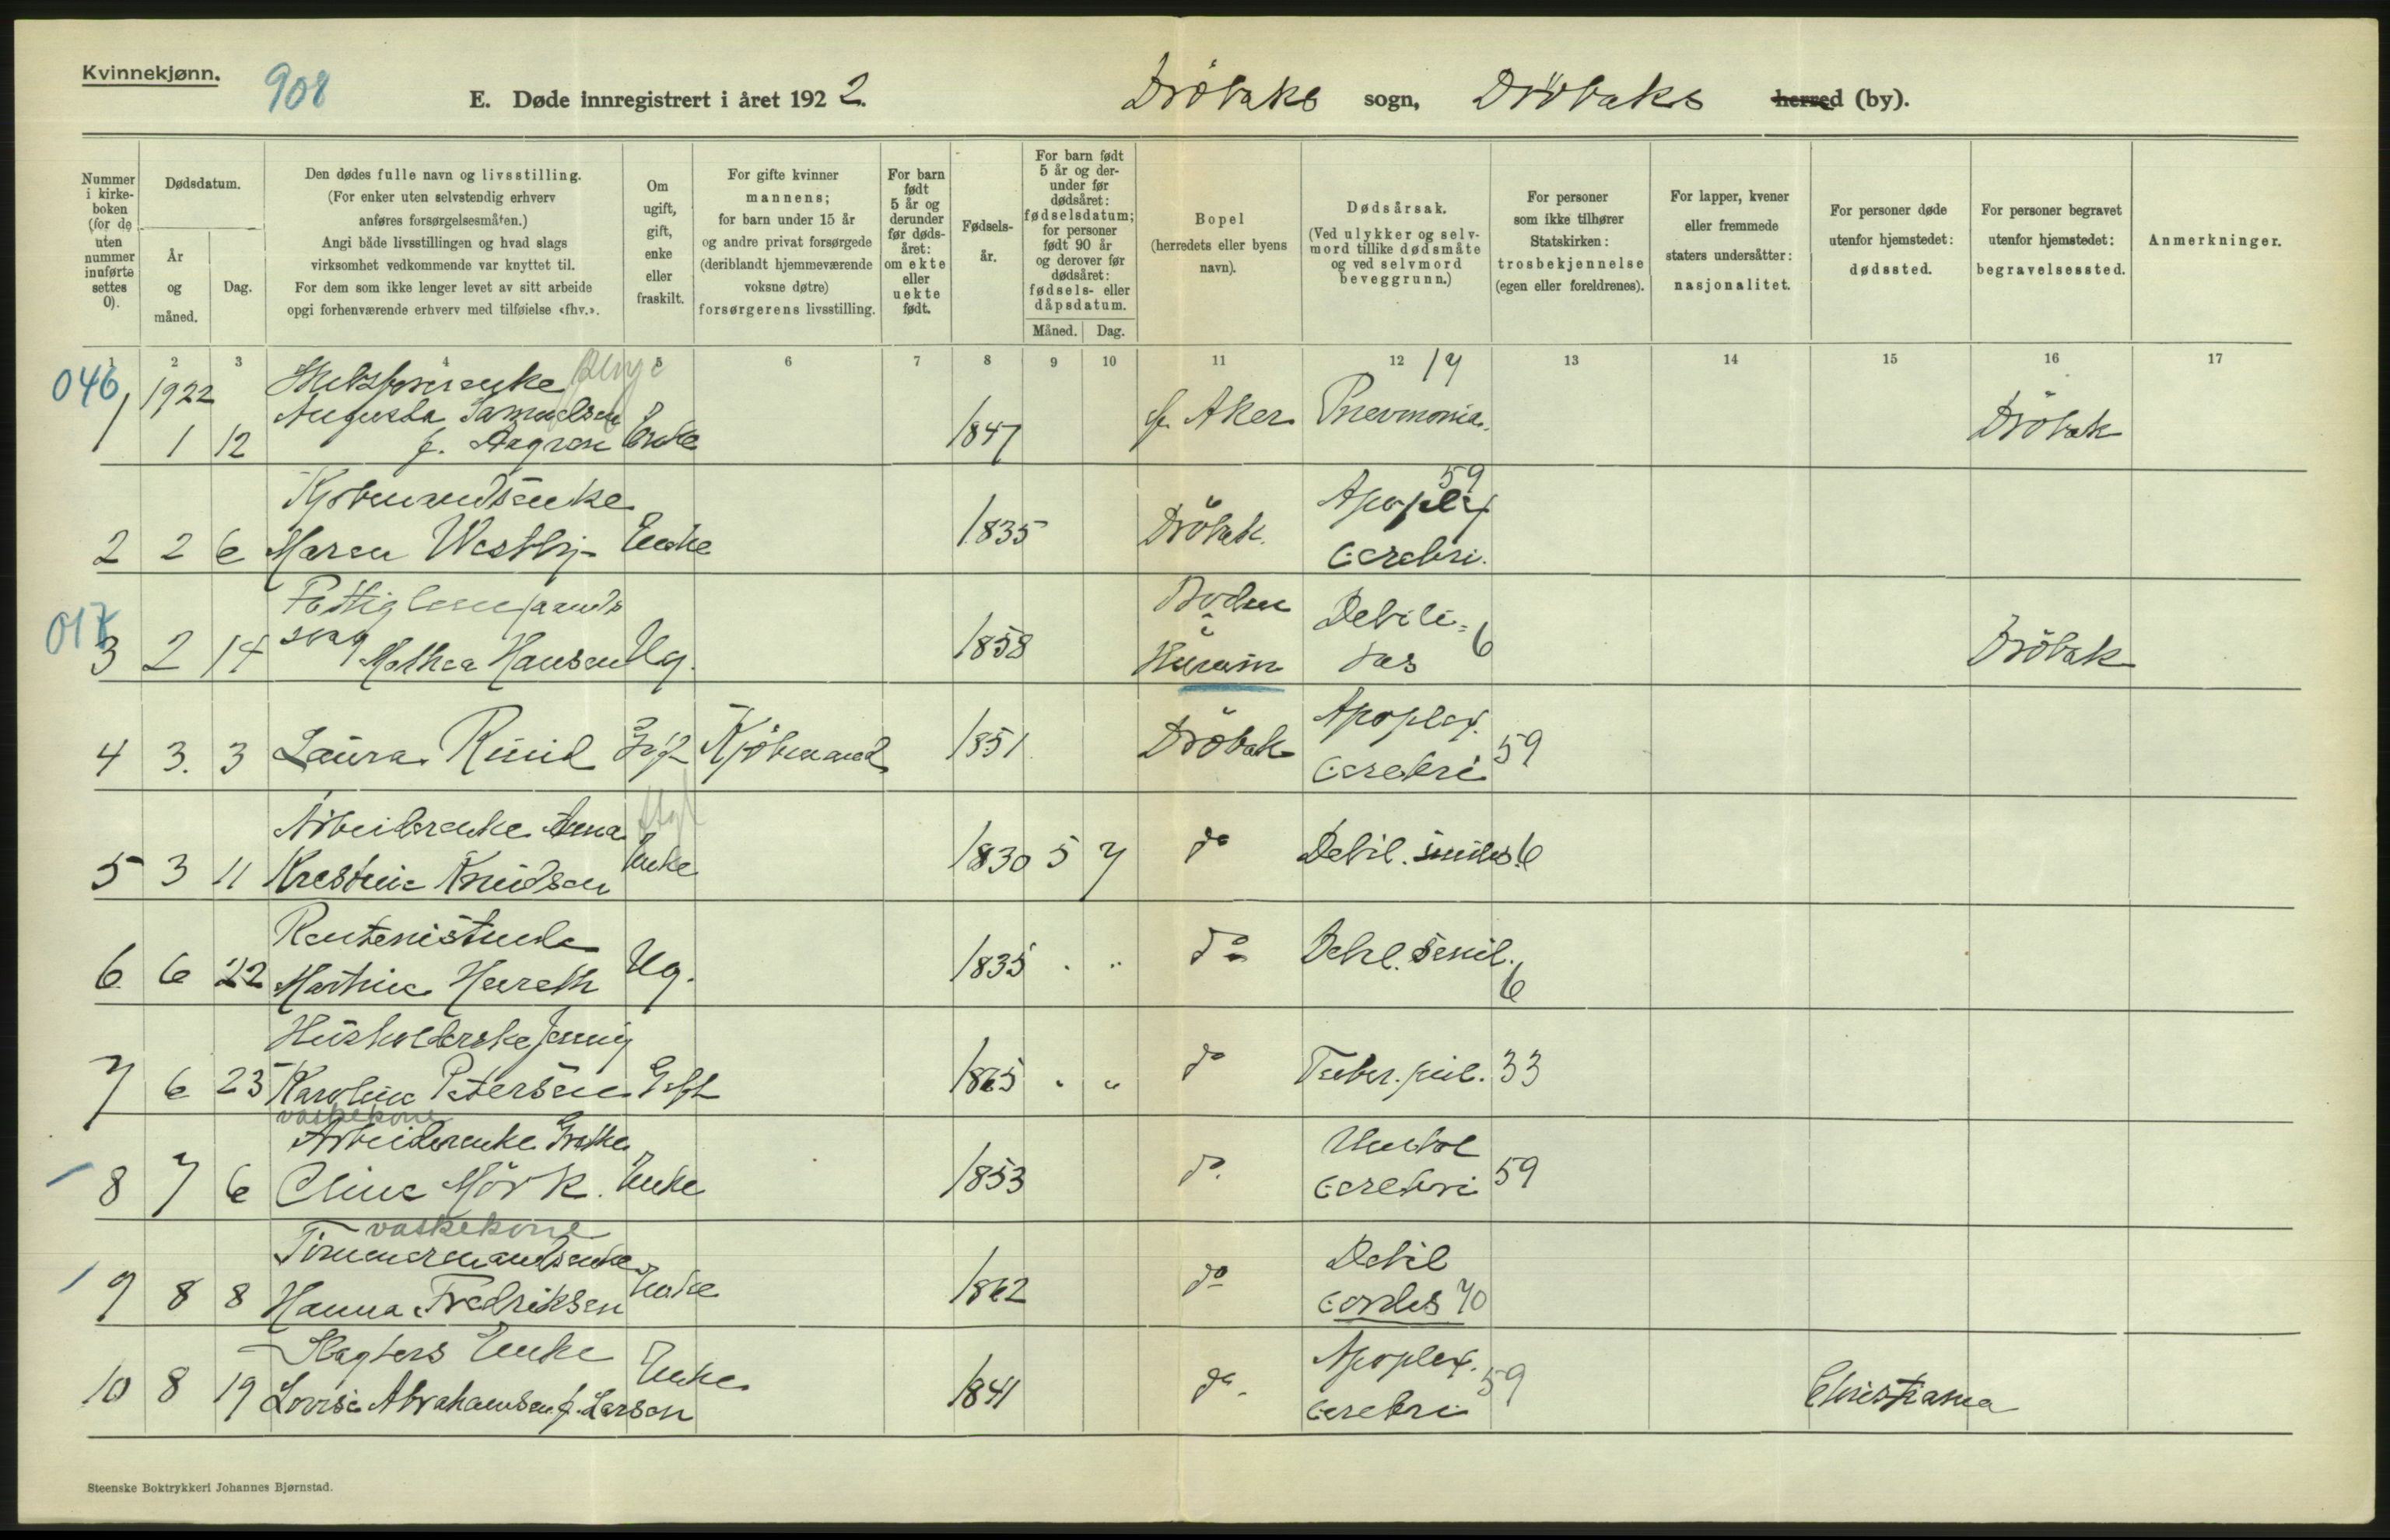 Kvinnekjønn.
908
E. Døde innregistrert i året 1922.
Dröbaks sogn, Dröbaks herred (by).
Nummer i kirkeboken (for de uten nummer innførte settes 0).
Dødsdatum.
År og måned.
Dag.
Den dødes fulle navn og livsstilling.
(For enker uten selvstendig erhverv
anføres forsørgelsesmåten.)
Angi både livsstillingen og hvad slags
virksomhet vedkommende var knyttet til.
For dem som ikke lenger levet av sitt arbeide
opgi forhenværende erhverv med tilføielse «fhv.».
Om ugift, gift, enke eller fraskilt.
For gifte kvinner
mannens;
for barn under 15 år
og andre privat forsørgede
(deriblandt hjemmeværende
voksne døtre)
forsørgerens livsstilling.
For barn født 5 år og derunder før dødsåret: om ekte eller uekte født.
Fødselsår.
For barn født 5 år og derunder før dødsåret: fødselsdatum; for personer født 90 år og derover før dødsåret: fødsels- eller dåpsdatum.
Måned. Dag.
Bopel
(herredets eller byens
navn).
Dødsårsak.
(Ved ulykker og selvmord tillike dødsmåte
og ved selvmord
beveggrunn.)
For personer
som ikke tilhører
Statskirken:
trosbekjennelse
(egen eller foreldrenes).
For lapper, kvener
eller fremmede
staters undersåtter:
nasjonalitet.
For personer døde
utenfor hjemstedet:
dødssted.
For personer begravet
utenfor hjemstedet:
begravelsessted.
Anmerkninger.
1 2 3 4 5 6 7 8 9 10 11 12 13 14 15 16 17
046
1922
Augusta Samuelsen
1 1 12 f. Enke 1847 Aker Pnevmonia. Dröbak
Kjøbmandsenke
59
Apoplex
2 2 6 Maren Westby Enke 1835 Dröbak. Cerebri.
017
Hurum
Debilitas 6
3 2 14 Mathea Hansen Ug. 1858 Dröbak
Apoplex.
4 3. 3 Laura Ruud Gift Kjöbmand 1851 Dröbak Cerebri 59
Arbeiderenke Anna
5 3 11 Krestine Knudsen Enke 1830 5 7 do Debil. senilis. 6
6 6 22 Martine Ug. 1835 " " do Debil. Senil. 6
Husholderske Jenny
7 6 25 Karoline Petersen Gift 1865 " " do Tuber. pul. 33
vaskekone
Arbeiderenke Grethe
8 7 6 Oline Mörk. Enke 1853 do. cerebri 59
vaskekone
Tømmermandsenke
Debil
9 8 8 Hanna Fredriksen Enke 1862 do cordis 70
Slagters Enke
Apoplex.
10 8 19 Lovise Abrahamsen f. Larsen Enke 1841 do. cerebri 59 Christiania
Steenske Boktrykkeri Johannes Bjørnstad.